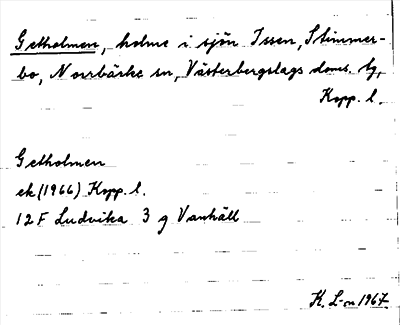 Getholmen, holme i sjön Issen, Stimmer-
bo, Norrbärke sn, Västerbergslags doms. tg,
Kopp. l.
Getholmen
ek (1966) Kopp. l.
12 F Ludvika 3 g Vanhäll
K. L-n 1967.